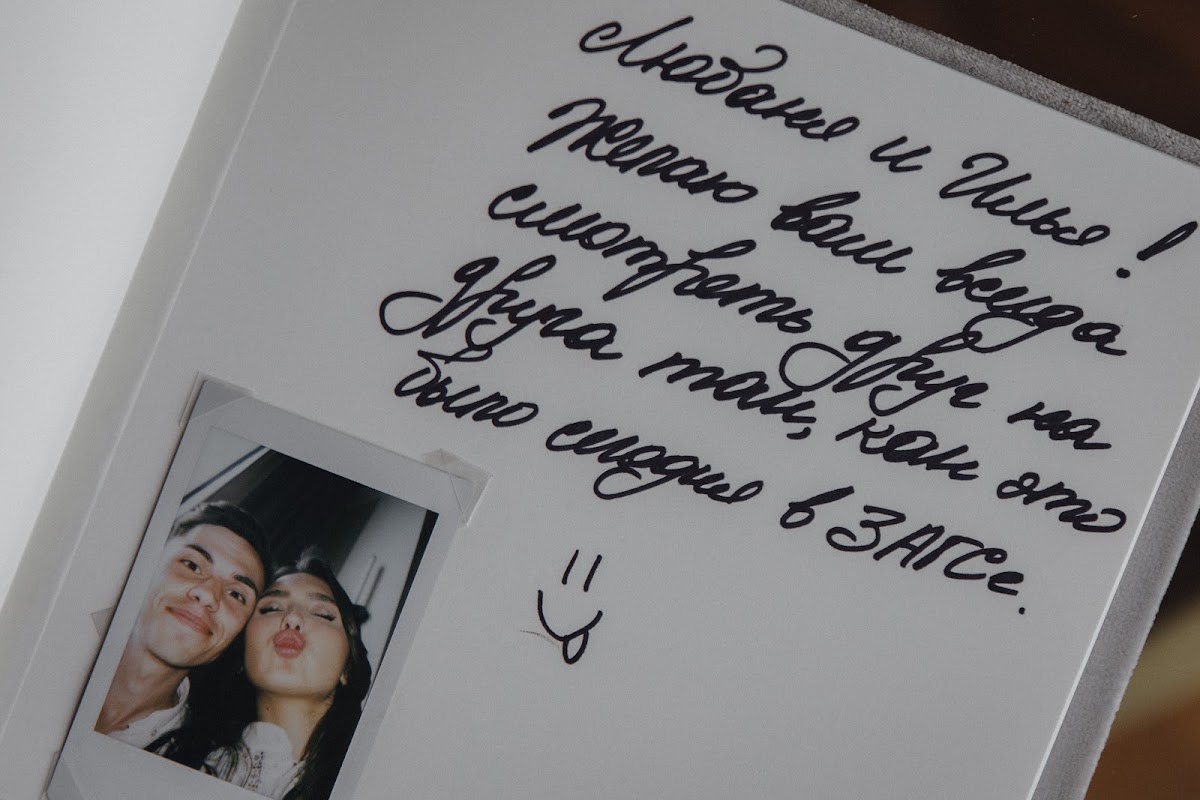 Любаня и Илья!
Желаю вам всегда
смотреть друг на
друга так, как это
было сегодня в ЗАГСе.